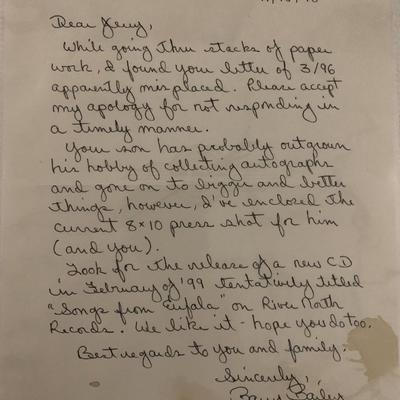 Dear Jerry,
While going thru stacks of paper
work, I found your letter of 3/96
apparently misplaced. Please accept
my apology for not responding in
a timely manner.
Your son has probably outgrown
his hobby of collecting autographs
and gone on to bigger and better
things, however, I've enclosed the
current 8x10 press shot for him
(and you).
Look for the release of a new CD
in February of '99 tentatively titled
"Songs from Eufala" on River North
Records. We like it - hope you do too.
Best regards to you and family.
Sincerely,
Barry Bailey